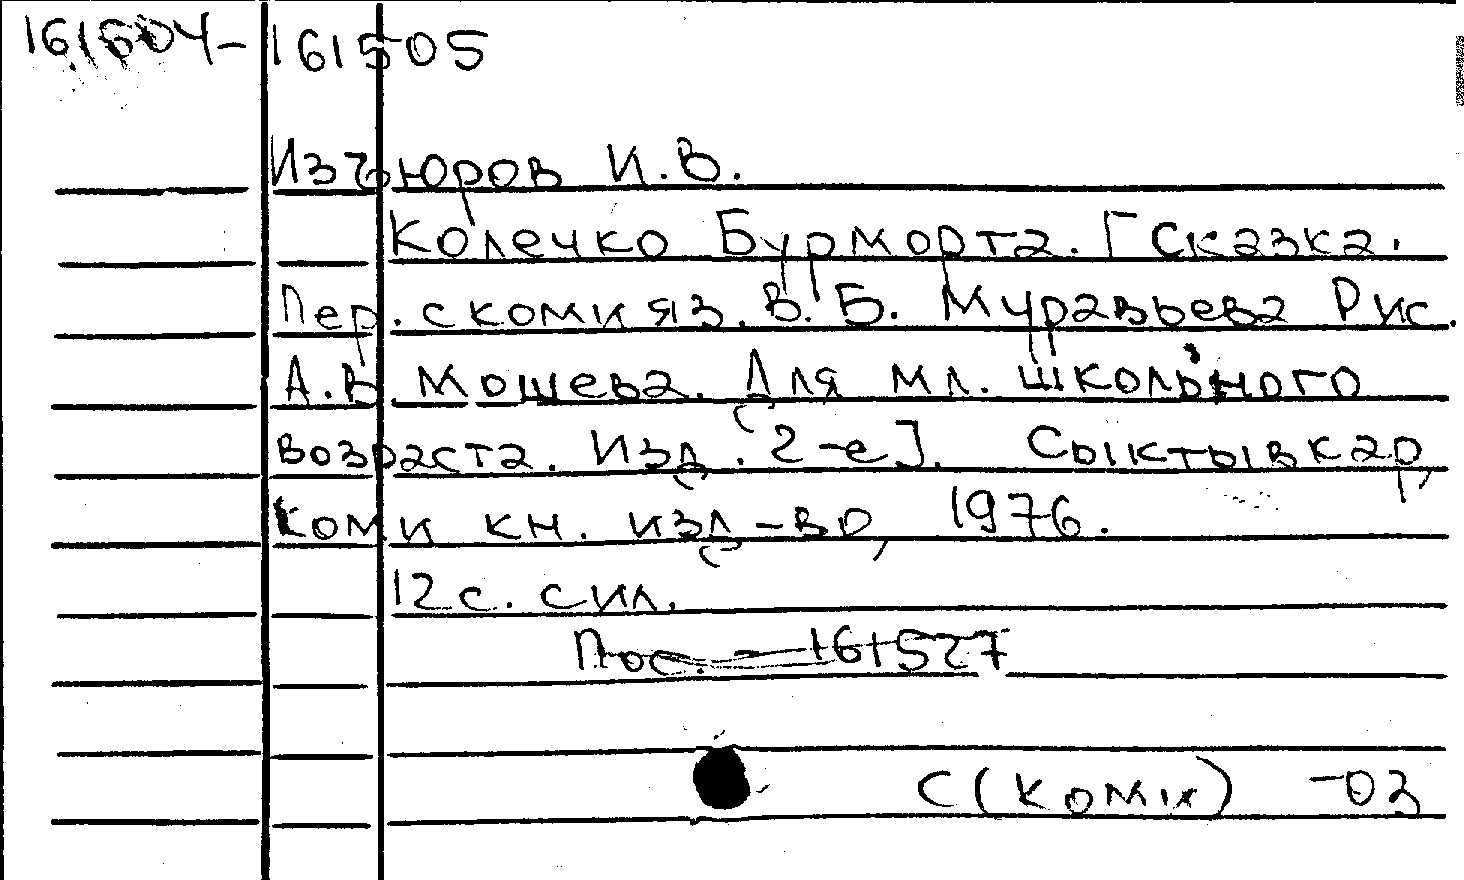 161504-161505
Изъюров И.В.
Колечко Бурморта. [Сказка.
Пер. с коми яз. В.Б. Муравьева Рис.
А.В. Мошева. Для мл. школьного
возраста. Изд. 2-е]. Сыктывкар,
Коми кн. изд-во, 1976.
12 с. с ил.
Пос. - 161527
С(Коми) -03